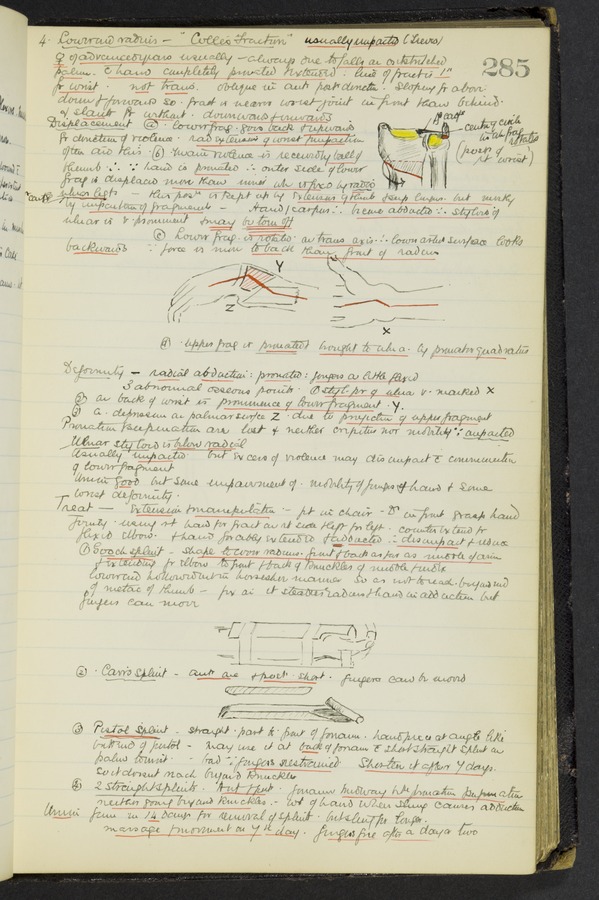 285
4. Lower end radius - "Colles Fracture" usually impacted
♀ of advanced years usually - always due to falls on outstretched
palm. & hand completely pronated & extended : line of fract is 1"
fr wrist. not trans. oblique in ant post direction. sloping fr above
down & forwards so fract is nearer wrist joint in front than behind.
& slants fr without downwards & inwards
Displacement (a) lower frag. goes back & upwards
fr direction of violence. rad extensors of wrist & impaction
often aid this. (b) main violence is received by ball of
thumb ∴ hand is pronated ∴ outer side of lower
frag is displaced more than inner wh is fixed by radio
ulnar ligts - this posn is kept up by extensors of thumb & sup longus. but mainly
by impaction of fragments - Hand & carpus ∴ become abducted ∴ styloid of
ulnar is v. prominent & may be torn off
(c) Lower frag. is rotated on trans axis ∴ lower artic surface looks
backwards ∵ force is more to back than front of radius
Y
Z
X
(d) upper frag is pronated & brought to ulna by pronator quadratus
Deformity - radial abduction : pronated : fingers a little flexed
3 abnormal osseous points. (1) styl. pr of ulna v. marked X
(2) on back of wrist is prominence of lower fragment. Y.
(3) a depression on palmar surface Z due to projection of upper fragment
Pronation & supination are lost & neither crepitus nor mobility ∵ impacted
Ulnar styloid is below radial
Usually impacted but excess of violence may disimpact & comminution
of lower fragment
Union good but some impairment of mobility of fingers & hand & some
wrist deformity.
Treat - Extension & manipulation - pt in chair - Dr in front grasps hand
firmly using rt hand for fract on rt side & left for left. counter extend fr
flexed elbow. & hand forcibly extended & adducted ∴ disimpact & reduce
(1) Gooch splint - shape to cover radius. front & back as far as middle of arm
& extending fr elbow to front & back of knuckles of middle & index
lower end hollowed out in horseshoe manner so as not to reach beyond
of metac of thumb - fix on it steadies radius & hand in adduction but
fingers can move
(2) Carr's splint - ant one & post short. fingers can be moved
(3) Pistol splint - straight part to front of forearm. hand piece at angle like
butt end of pistol - may use it at back of forearm & short straight splint on
palm to wrist - bad ∵ fingers restrained. Shorten it after 7 days.
so it doesnt reach beyond knuckles
(4) 2 straight splints. Ant & post. forearm midway betw pronation & supination
neither going beyond knuckles - wt of hand when slung causes adduction
Union firm in 14 days for removal of splint. but sling for longer.
massage & movement on 7th day. fingers free after a day or two